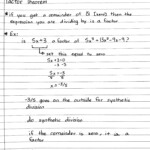 Factor Theorem
* if you get a remainder of 0! (zero) then the
expression you are dividing by is a factor
* Ex:
is 5x+3 a factor of 5x³
set this equal to zero
5x+3=0
-3 -3
5x = -3
x = -3/5
-3/5 goes on the outside for synthetic
division
do synthetic division
if the remainder is zero, it is a
factor